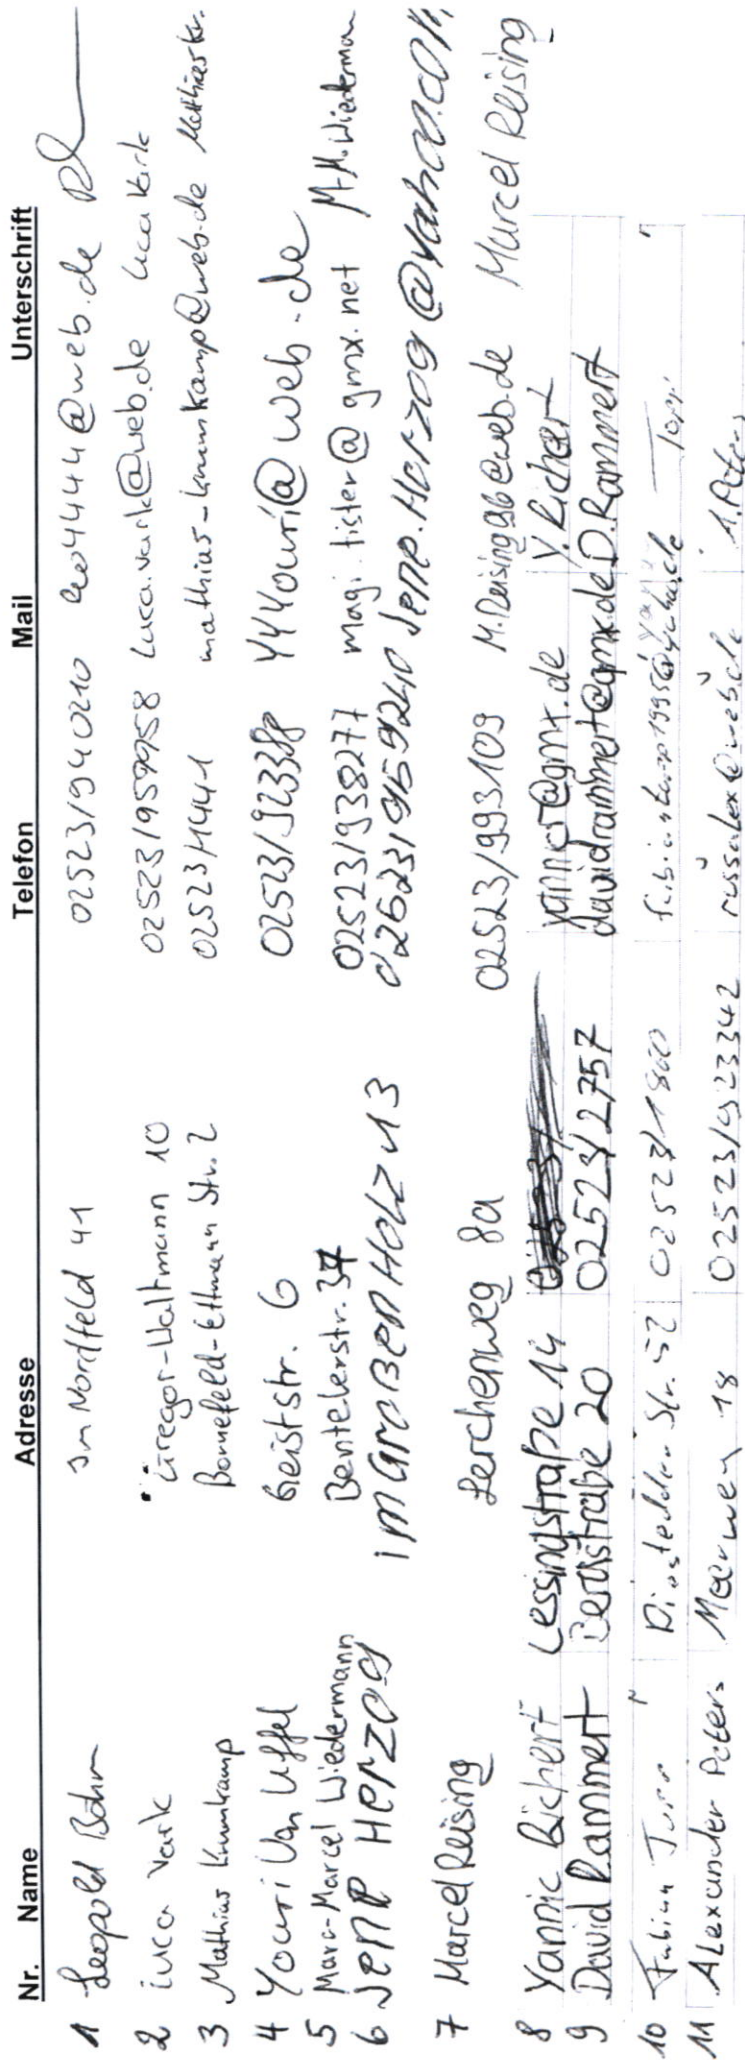 Nr. Name Adresse Telefon Mail Unterschrift
1 Leopold Böhm Im Nordfeld 41 02523/940210 leo4444@web.de
2 Luca Vark Gregor-Waltmann 10 02523/959958 luca.vark@web.de Luca Vark
3 Mathias Krumkamp Bonnefeld-Ettmann Str. 2 02523/1444 mathias-krumkamp@web.de
4 Youri Van Uffel Geiststr. 6 02523/923388 YYYouri@web.de
5 Marc-Marcel Wiedermann Bentelerstr. 37 02523/938277 magi.tister@gmx.net M-M.Wiederman
6 Jene Herzog im großen Holz 13 02523/959240 Jene.Herzog@yahoo.com
7 Marcel Reising Lerchenweg 8a 02523/993109 M.Reising96@web.de Marcel Reising
8 Yannic Richert Lessingstraße 14 yannicr@gmx.de Y.Richert
9 David Rammert Bergstraße 20 02523/2757 davidrammert@gmx.de D.Rammert
10 Fabian Diestedder Str. 52 02523/1800
11 Alexander Peters Meerweg 18 02523/923342 russalex@web.de A.Peters